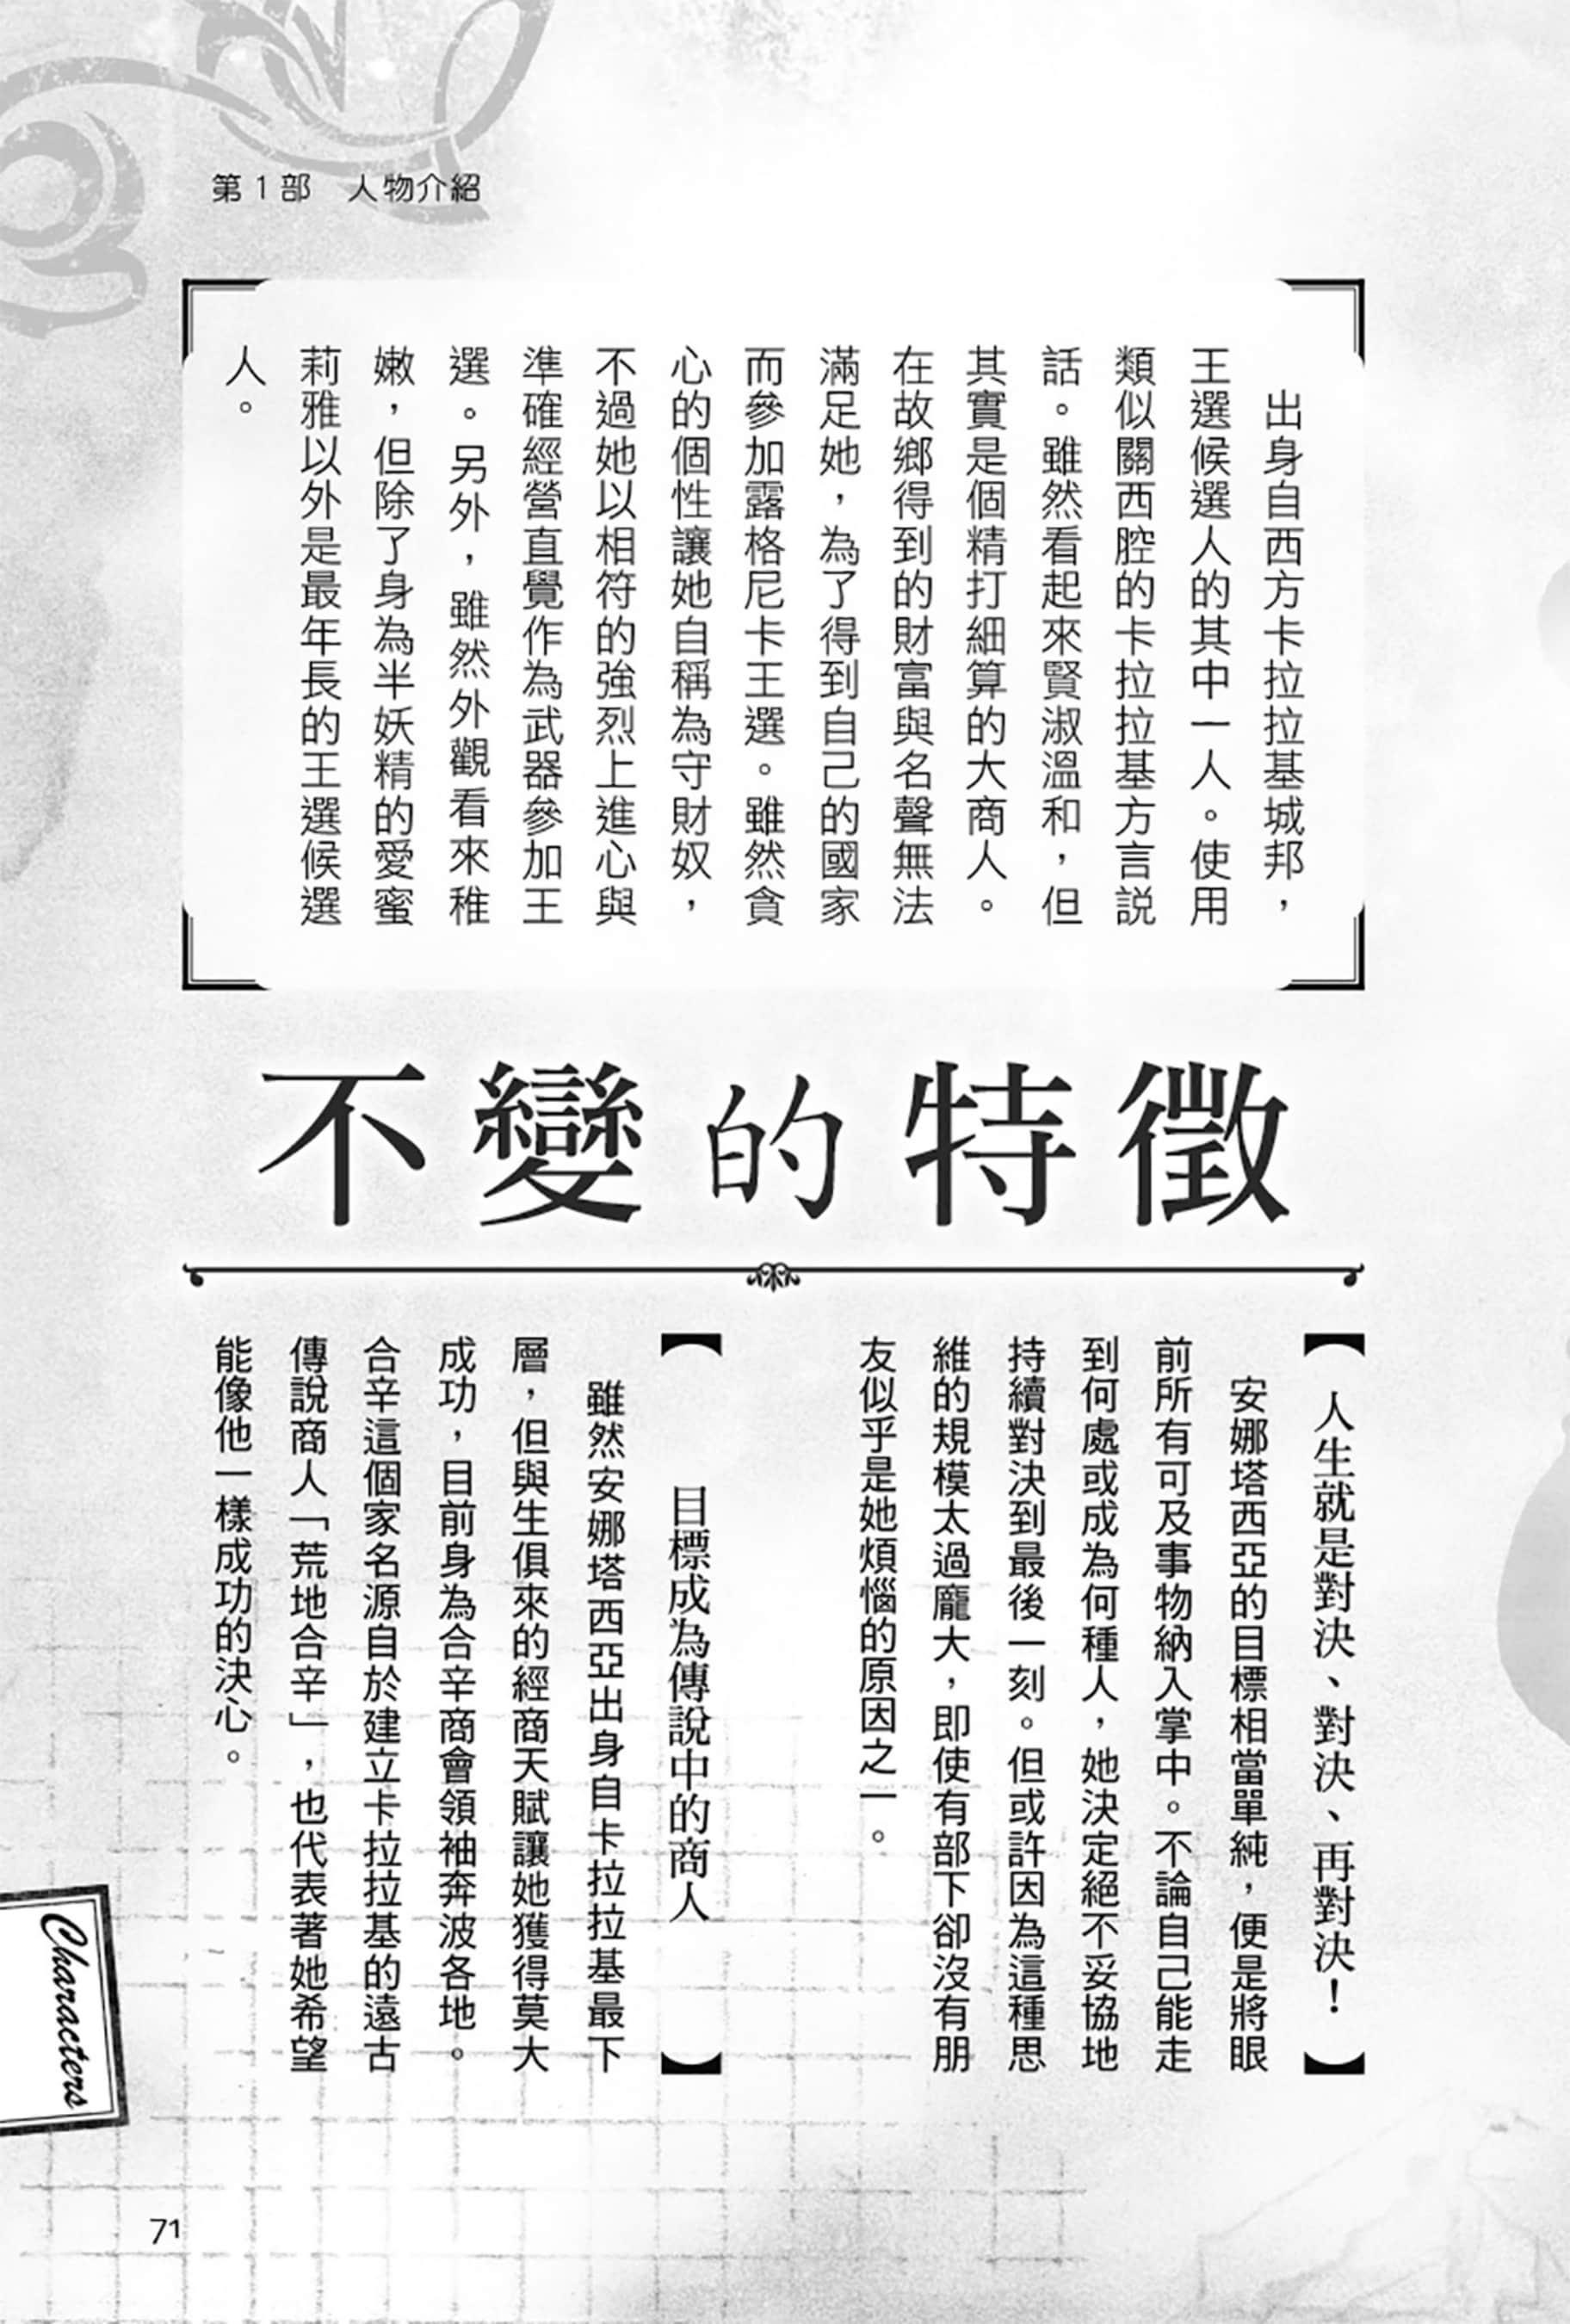 第1部　人物介紹
出身自西方卡拉拉基城邦，
王選候選人的其中一人。使用
類似關西腔的卡拉拉基方言說
話。雖然看起來賢淑溫和，但
其實是個精打細算的大商人。
在故鄉得到的財富與名聲無法
滿足她，為了得到自己的國家
而參加露格尼卡王選。雖然貪
心的個性讓她自稱為守財奴，
不過她以相符的強烈上進心與
準確經營直覺作為武器參加王
選。另外，雖然外觀看來稚
嫩，但除了身為半妖精的愛蜜
莉雅以外是最年長的王選候選
人。
不變的特徵
【人生就是對決、對決、再對決！】
安娜塔西亞的目標相當單純，便是將眼
前所有可及事物納入掌中。不論自己能走
到何處或成為何種人，她決定絕不妥協地
持續對決到最後一刻。但或許因為這種思
維的規模太過龐大，即使有部下卻沒有朋
友似乎是她煩惱的原因之一。
【目標成為傳說中的商人】
雖然安娜塔西亞出身自卡拉拉基最下
層，但與生俱來的經商天賦讓她獲得莫大
成功，目前身為合辛商會領袖奔波各地。
合辛這個家名源自於建立卡拉拉基的遠古
傳說商人「荒地合辛」，也代表著她希望
能像他一樣成功的決心。
Characters
71